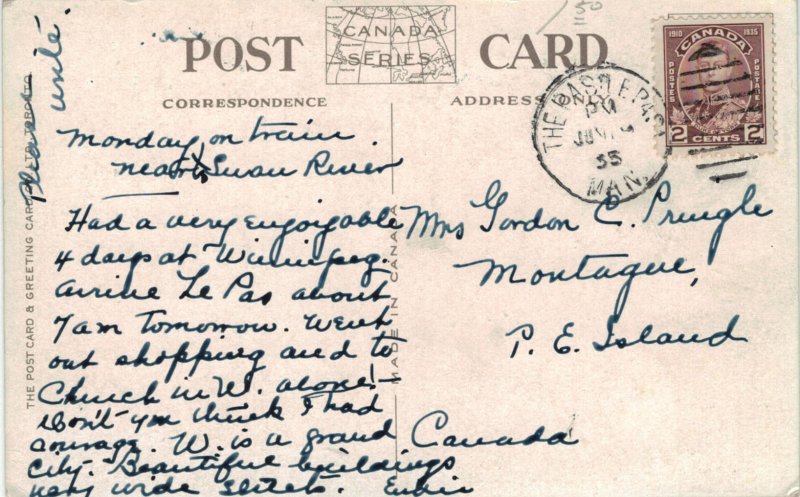 Please write.
POST CARD
CANADA
SERIES
CORRESPONDENCE
ADDRESS ONLY
1150
1910 CANADA 1935
POSTES POSTAGE
2 CENTS 2
THE PAS
PM
JUN
35
MAN.
Monday, on train
near Swan River
Had a very enjoyable
4 days at Winnipeg.
Arrive Le Pas about
7 am tomorrow. Went
out shopping and to
Church in W. alone! -
Don't you think I had
courage. W. is a grand
city. Beautiful buildings
very wide streets.
Mrs Gordon C. Pringle
Montague,
P. E. Island
Canada
THE POST CARD & GREETING CARD CO. LTD. TORONTO
MADE IN CANADA